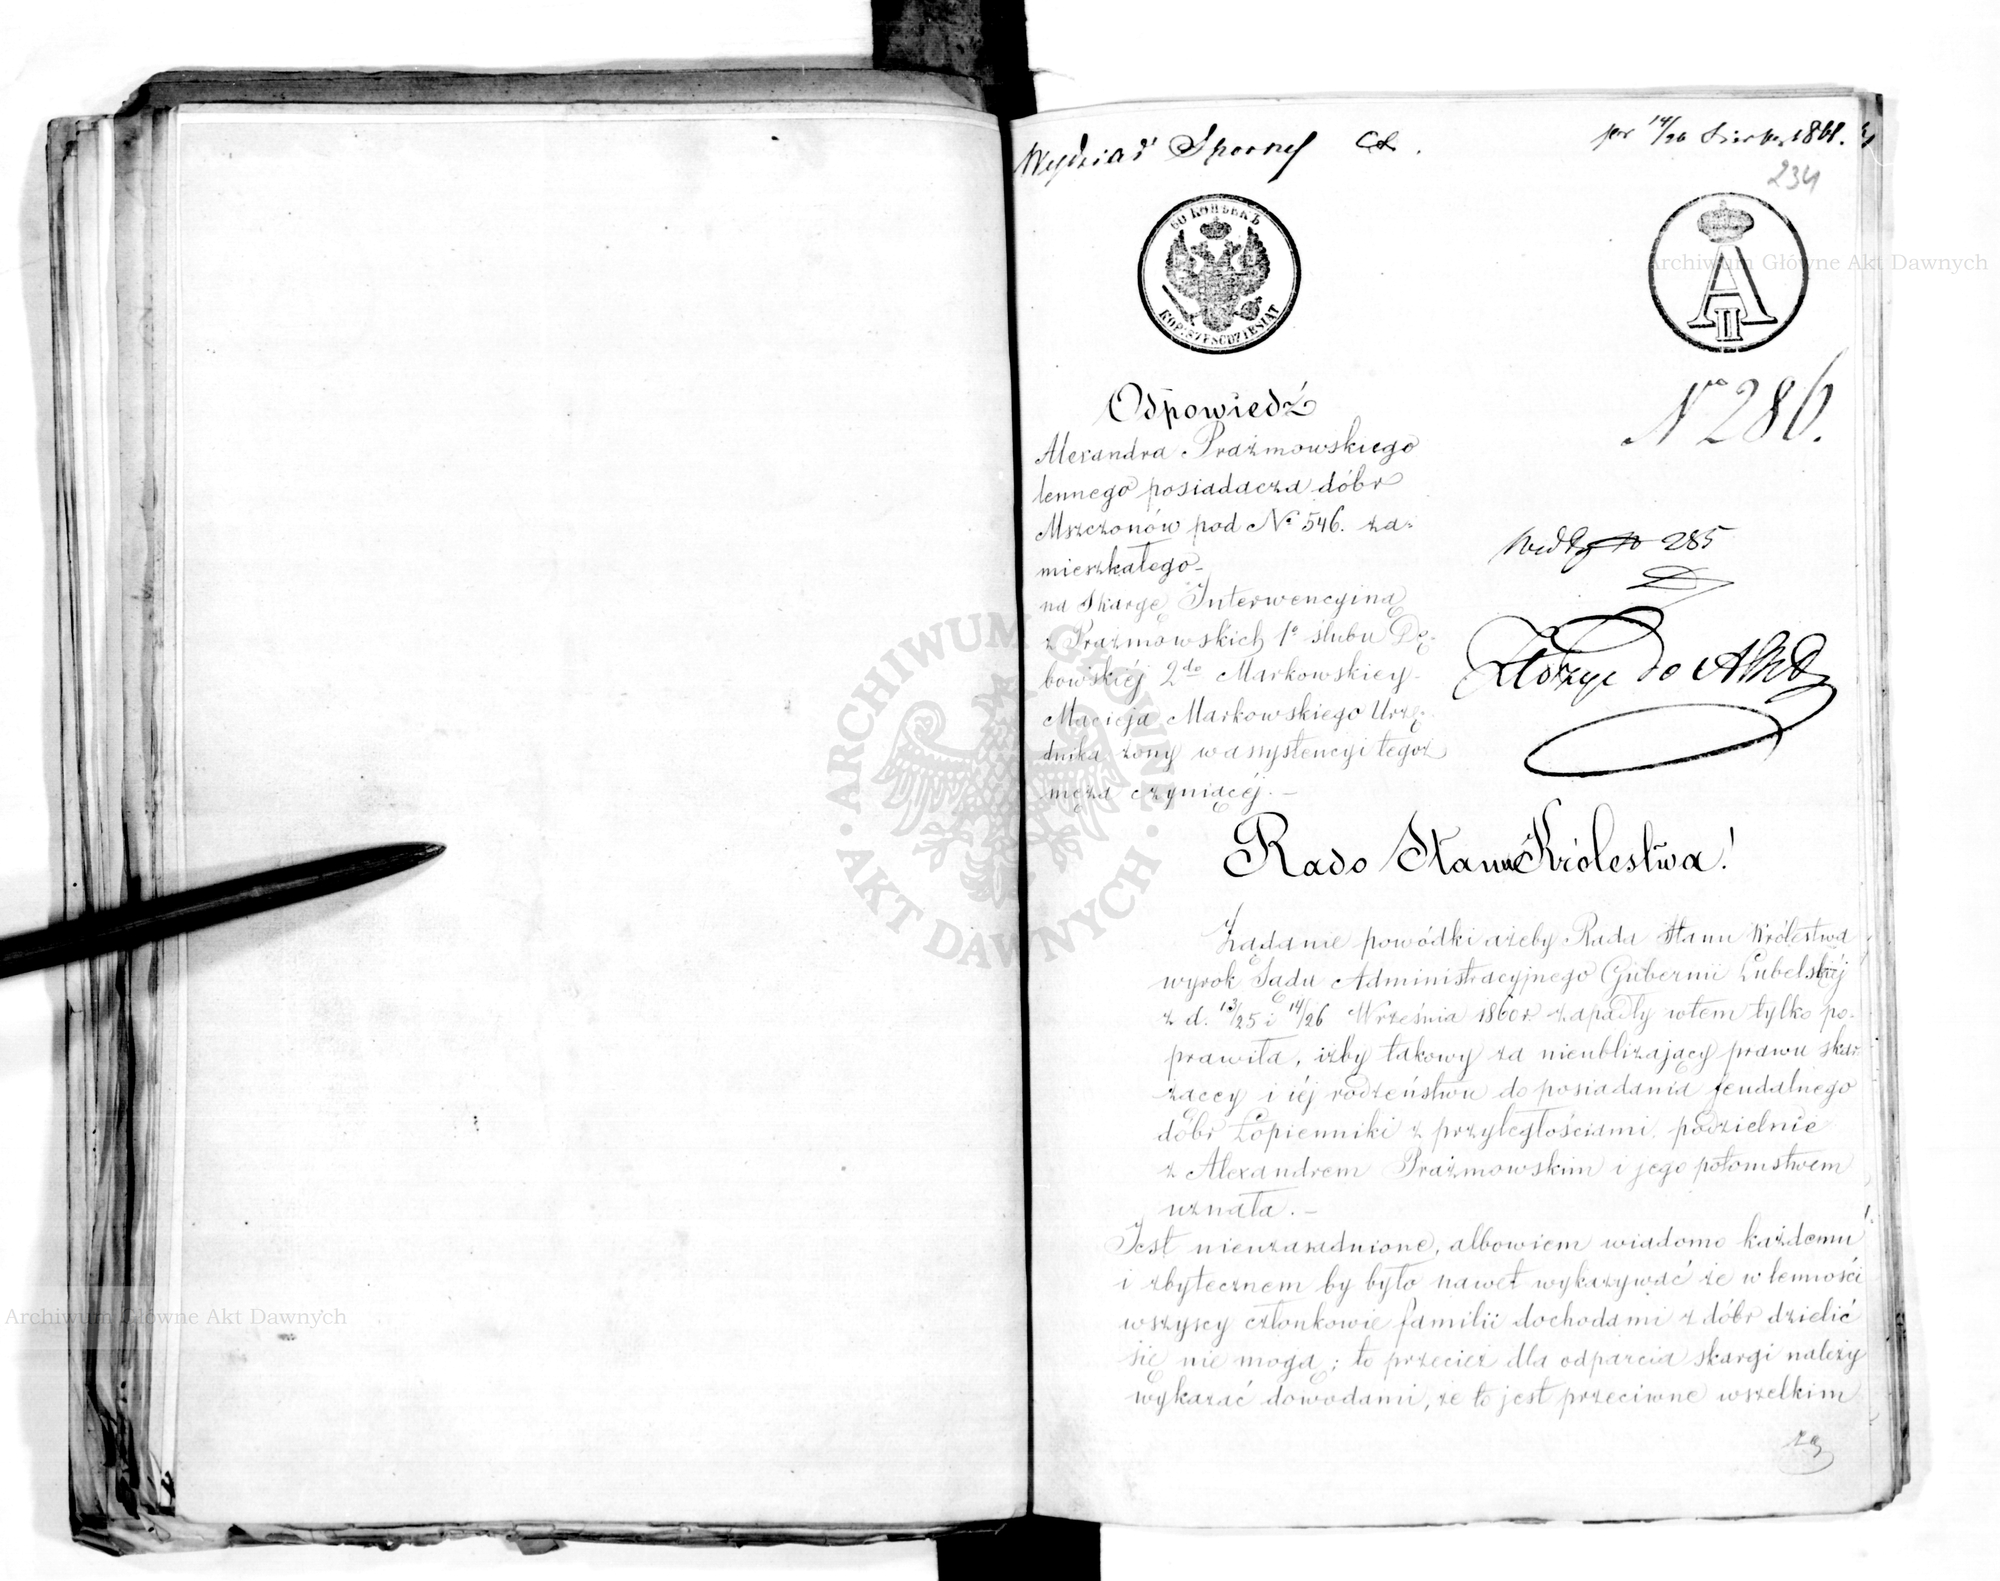 Wydział Sporny
1861.
234
60 КОПѢЕКЪ
KOP: SZEŚĆDZIESIĄT
A II
Archiwum Główne Akt Dawnych
No 286.
Odpowiedź
Alexandra Prażmowskiego
lennego posiadacza dóbr
Mszczonów pod No 546. za-
mieszkałego
na Skargę Interwencyjną
z Prażmowskich 1o ślubu Dę-
bowskiéj 2do Markowskiey
Macieja Markowskiego Urzę-
dnika żony w assystencyi tegoż
męża czyniącéj. —
285
Złożyć do Akt
ARCHIWUM GŁÓWNE · AKT DAWNYCH ·
Rado Stanu Królestwa!
Żądanie powódki ażeby Rada Stanu Królestwa
wyrok Sądu Administracyjnego Gubernii Lubelskiéj
z d. 13/25 i 14/26 Września 1860 r. zapadły wtem tylko po-
prawiła, iżby takowy za nieubliżający prawu skar-
żącey i iéj rodzeństwu do posiadania feudalnego
dóbr Łopienniki z przyległościami, podzielnie
z Alexandrem Prażmowskim i jego potomstwem
uznała. —
Jest nieuzasadnione, albowiem wiadomo każdemu
i zbytecznem by było nawet wykazywać że w lenności
wszyscy członkowie familii dochodami z dóbr dzielić
się nie mogą; to przecież dla odparcia skargi należy
wykazać dowodami, że to jest przeciwne wszelkim
Archiwum Główne Akt Dawnych